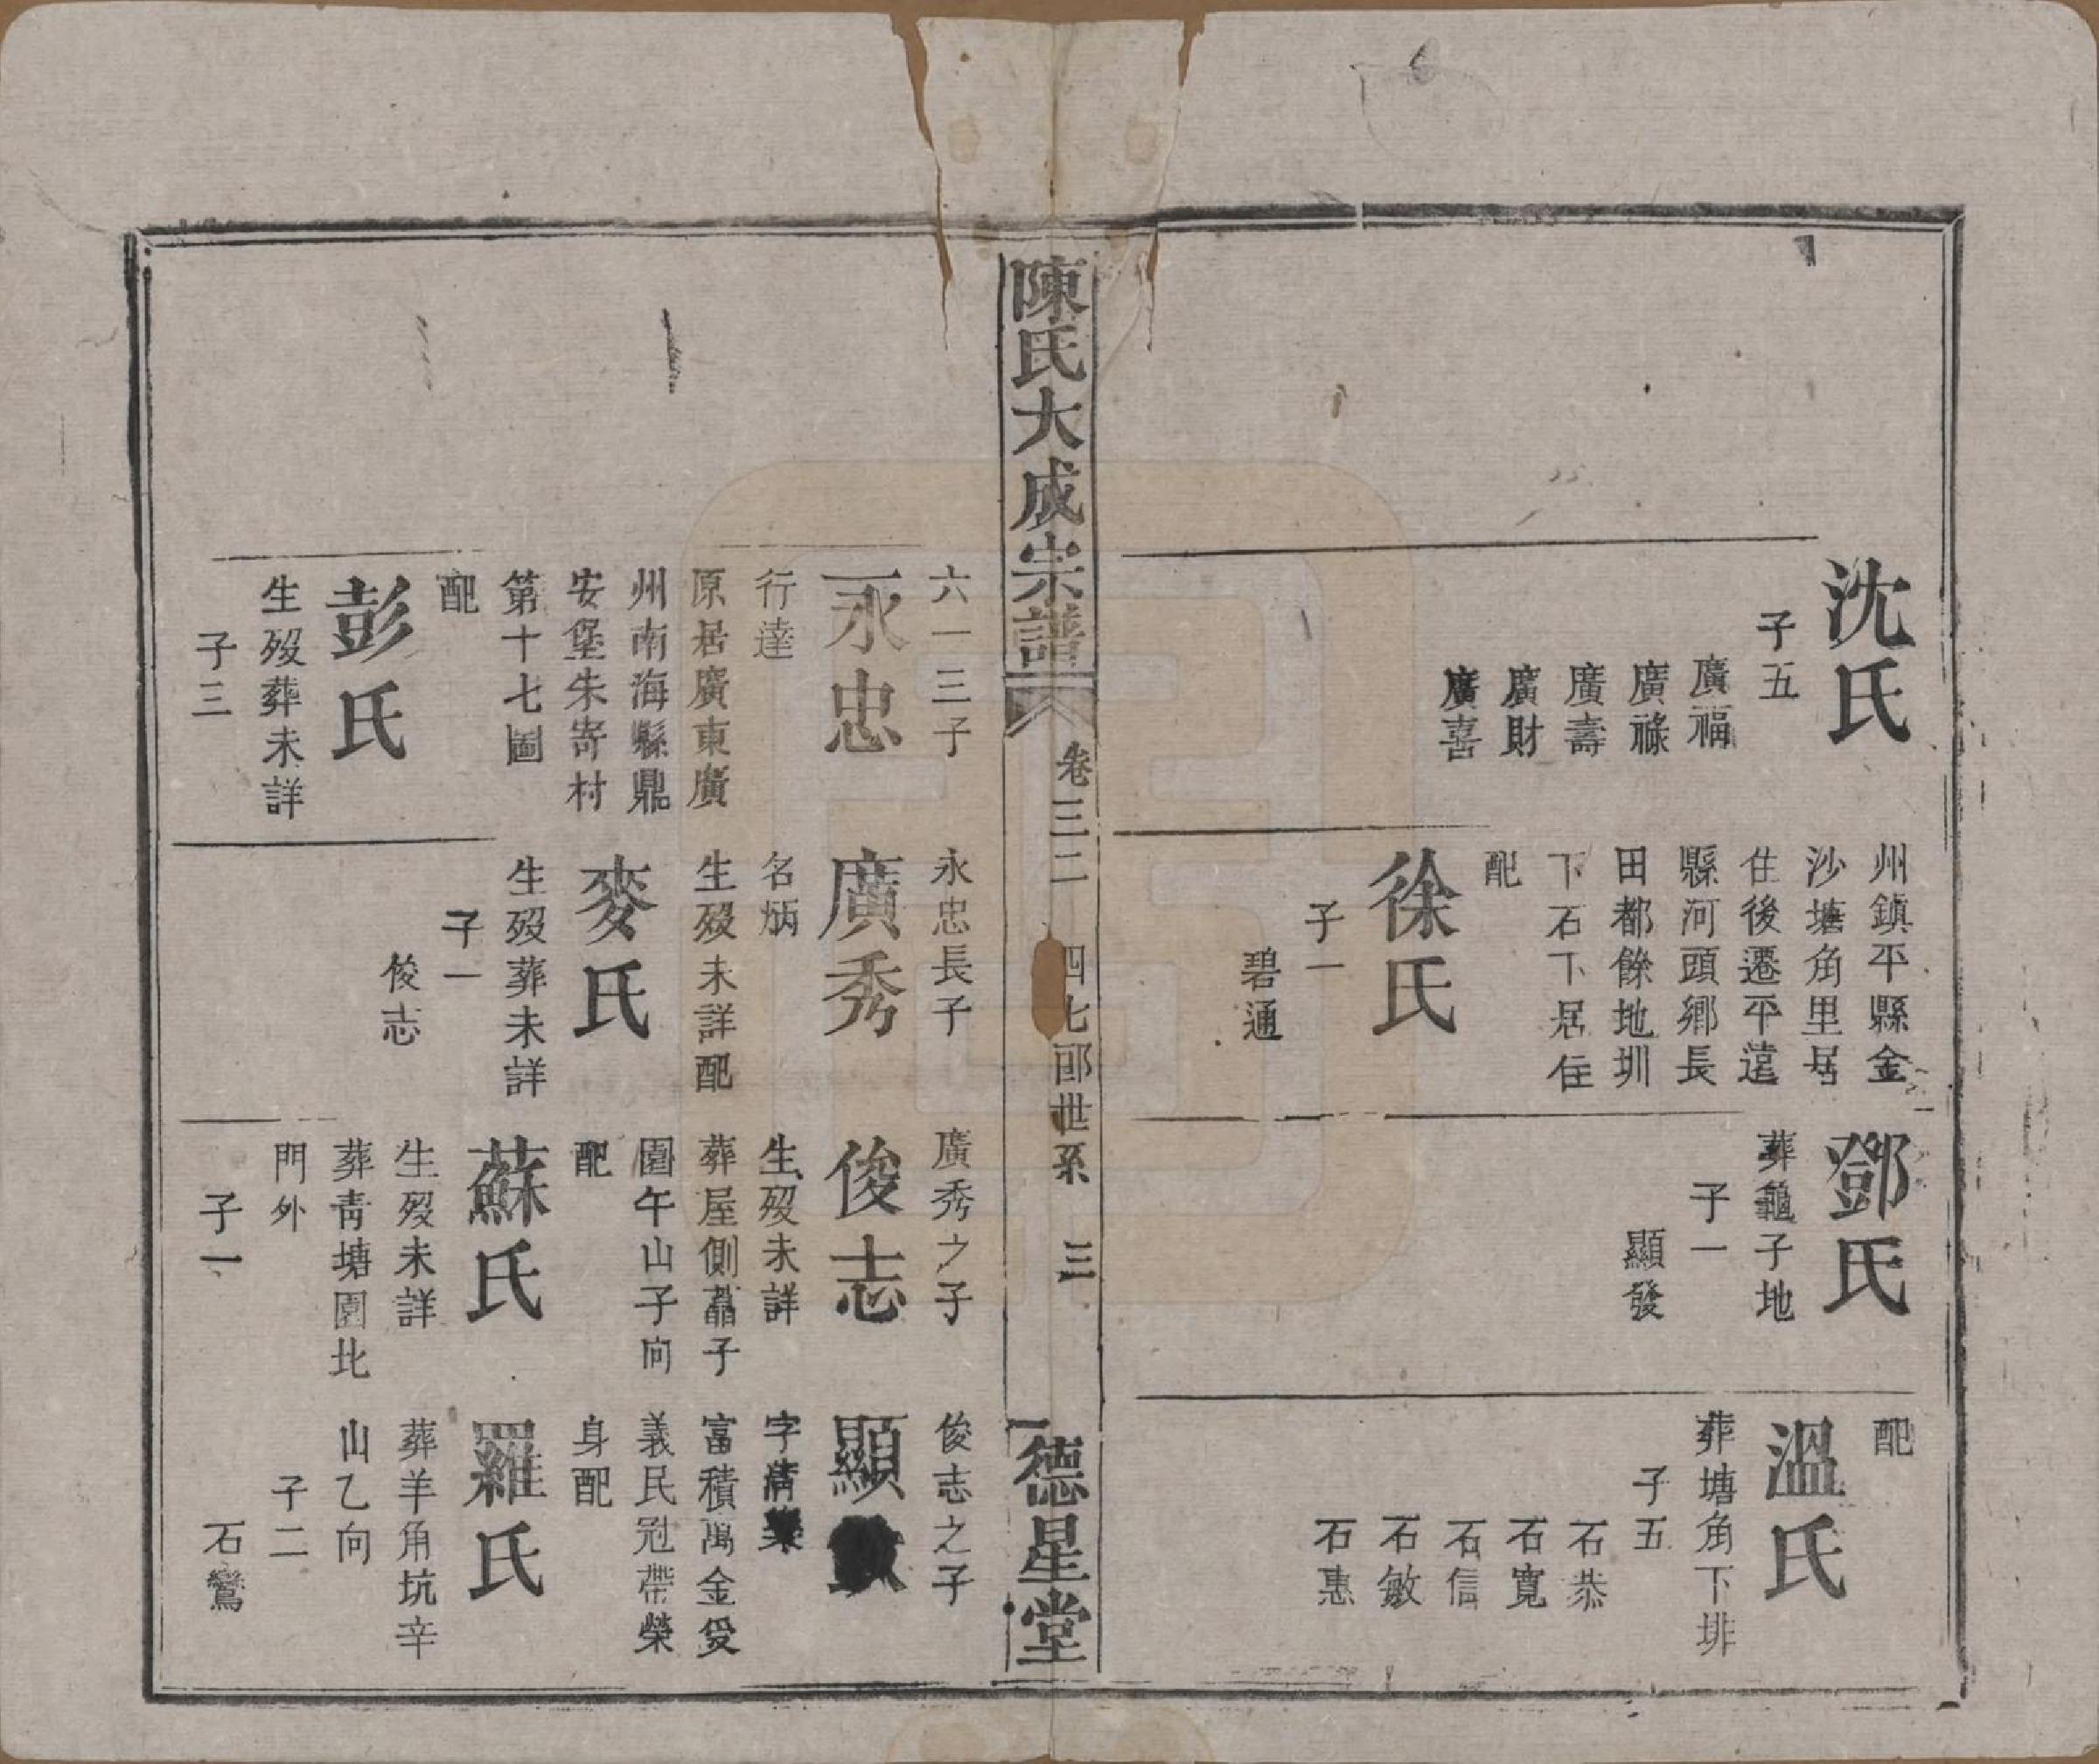 沈氏
子五
廣福
廣祿
廣壽
廣財
廣喜
州鎮平縣金
沙塘角里居
住後遷平遠
縣河頭鄉長
田都餘地圳
下石下居住
配
徐氏
子一
碧通
鄧氏
葬龜子地
子一
顯發
配
溫氏
葬塘角下排
子五
石恭
石寬
石信
石敏
石惠
陳氏大成宗譜
卷三二 四七郎世系 三
德星堂
六一三子
永忠
行達
原居廣東廣
州南海縣鼎
安堡朱寄村
第十七圖
配
彭氏
生歿葬未詳
子三
永忠長子
廣秀
名炳
生歿未詳配
麥氏
生歿葬未詳
子一
俊志
廣秀之子
俊志
生歿未詳
葬屋側藠子
園午山子向
配
蘇氏
生歿未詳
葬青塘園北
門外
子一
俊志之子
顯
字清
富積萬金受
義民冠帶榮
身配
羅氏
葬羊角坑辛
山乙向
子二
石鸞